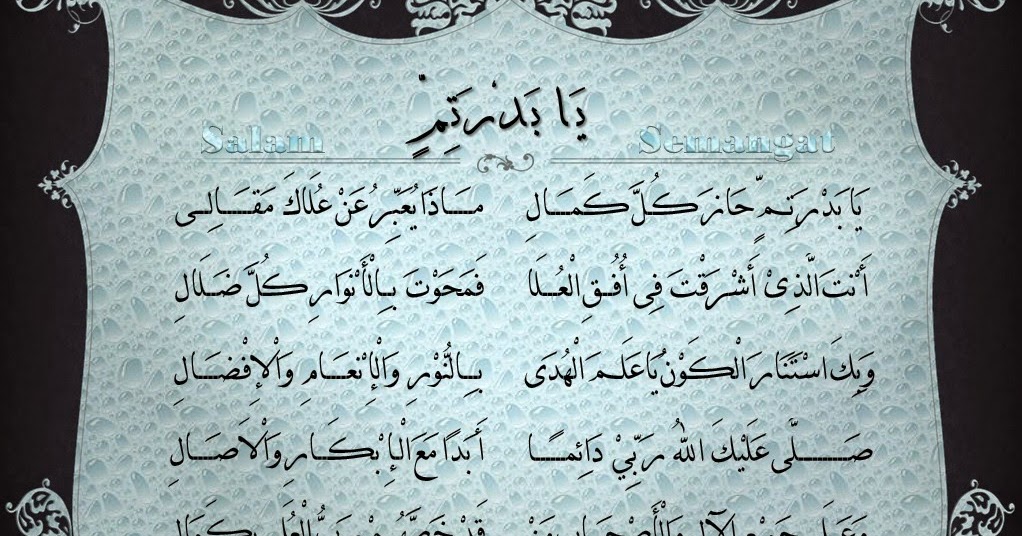 يَا بَدْرَتِمٍّ
Salam Semangat
يَا بَدْرَتِمٍّ حَازَ كُلَّ كَمَالِ مَاذَا يُعَبِّرُ عَنْ عُلَاكَ مَقَالِى
أَنْتَ الَّذِىْ أَشْرَقْتَ فِى أُفُقِ الْعُلَا فَمَحَوْتَ بِالْأَنْوَارِ كُلَّ ضَلَالِ
وَبِكَ اسْتَنَارَ الْكَوْنُ يَا عَلَمَ الْهُدَى بِالنُّوْرِ وَالْإِنْعَامِ وَالْإِفْضَالِ
صَلَّى عَلَيْكَ اللهُ رَبِّيْ دَائِمًا أَبَدًا مَعَ الْإِبْكَارِ وَالْاَصَالِ
وَعَلَى جَمِيْعِ الْآلِ وَالْأَصْحَابِ مَنْ قَدْ خَصَّهُمْ رَبُّ الْعُلَى بِكَمَالِ